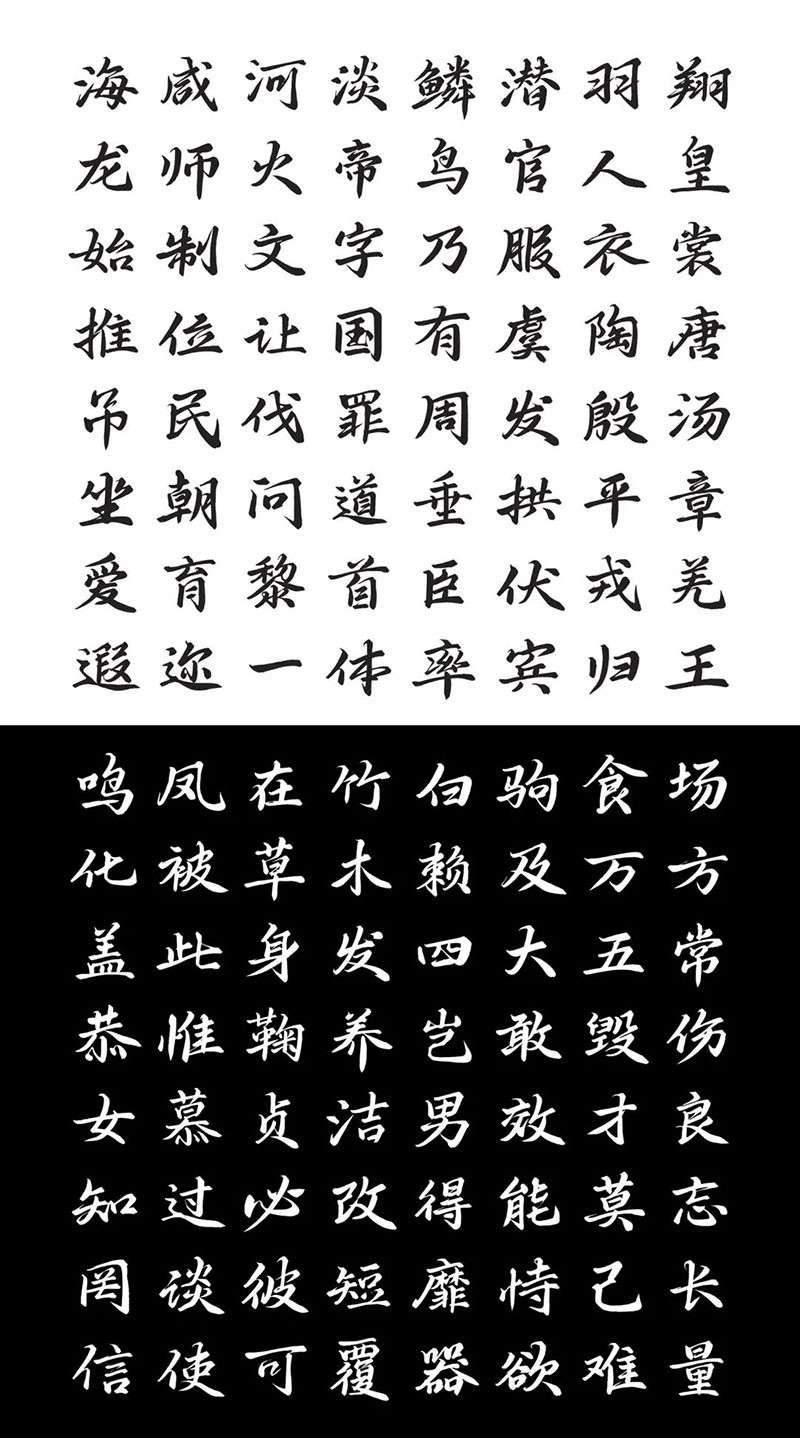 海咸河淡鳞潜羽翔
龙师火帝鸟官人皇
始制文字乃服衣裳
推位让国有虞陶唐
吊民伐罪周发殷汤
坐朝问道垂拱平章
爱育黎首臣伏戎羌
遐迩一体率宾归王
鸣凤在竹白驹食场
化被草木赖及万方
盖此身发四大五常
恭惟鞠养岂敢毁伤
女慕贞洁男效才良
知过必改得能莫忘
罔谈彼短靡恃己长
信使可覆器欲难量